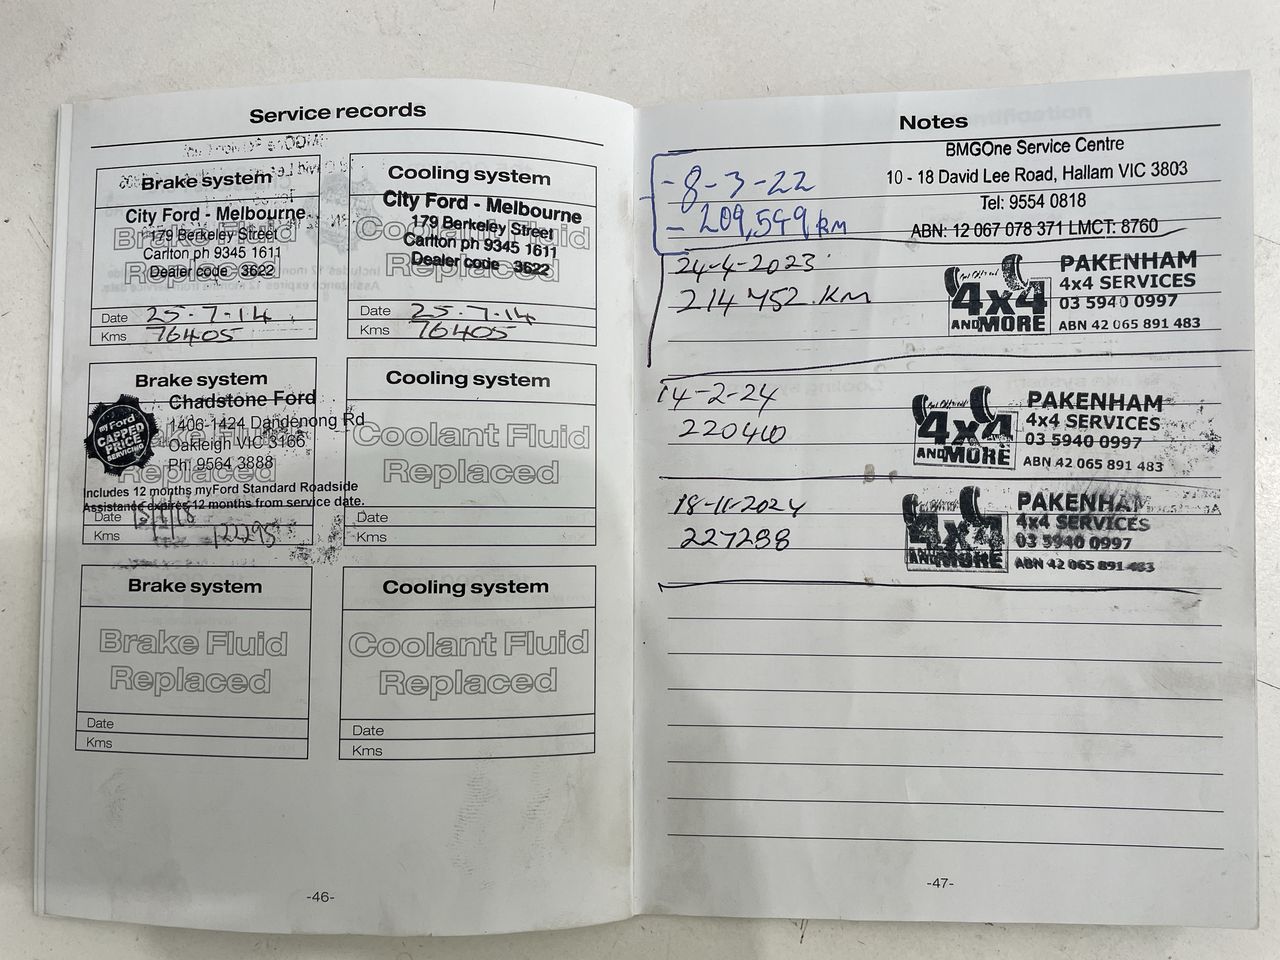 Service records
Brake system
City Ford - Melbourne
179 Berkeley Street
Carlton ph 9345 1611
Dealer code 3622
Brake Fluid
Replaced
Date 25-7-14
Kms 76405
Cooling system
City Ford - Melbourne
179 Berkeley Street
Carlton ph 9345 1611
Dealer code 3622
Coolant Fluid
Replaced
Date 25-7-14
Kms 76405
Brake system
Chadstone Ford
1406-1424 Dandenong Rd
Oakleigh VIC 3166
Ph: 9564 3888
my Ford
CAPPED
PRICE
SERVICING
Replaced
Includes 12 months myFord Standard Roadside
Assistance expires 12 months from service date.
Date
Kms
Cooling system
Coolant Fluid
Replaced
Date
Kms
Brake system
Brake Fluid
Replaced
Date
Kms
Cooling system
Coolant Fluid
Replaced
Date
Kms
-46-
Notes
BMGOne Service Centre
10 - 18 David Lee Road, Hallam VIC 3803
Tel: 9554 0818
ABN: 12 067 078 371 LMCT: 8760
- 8-3-22
- 209,549 km
24-4-2023
214752.KM
4x4
AND MORE
PAKENHAM
4x4 SERVICES
03 5940 0997
ABN 42 065 891 483
14-2-24
220410
4x4
AND MORE
PAKENHAM
4x4 SERVICES
03 5940 0997
ABN 42 065 891 483
18-11-2024
227288
4x4
AND MORE
PAKENHAM
4x4 SERVICES
03 5940 0997
ABN 42 065 891 483
-47-